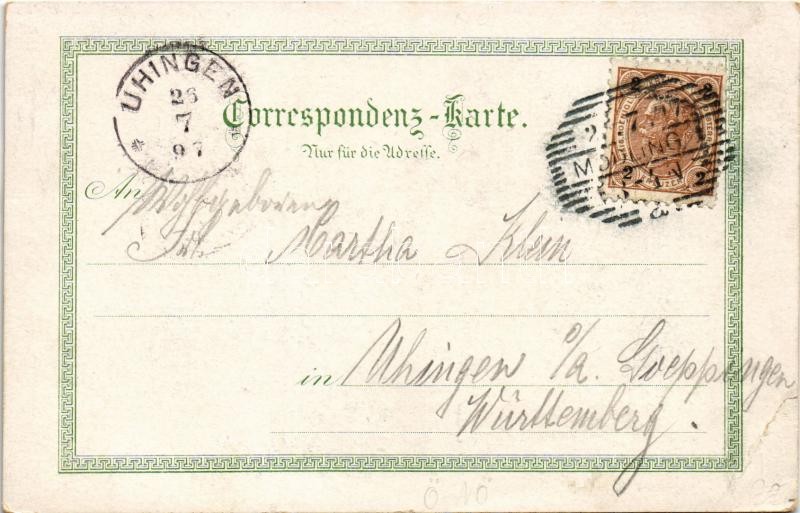 UHINGEN
26
7
97
Correspondenz-Karte.
Nur für die Adresse.
2 2
MÖDLING
2 KREUZER 2
An Wohlgeboren
Martha Klein
in Uhingen o/a. Goeppingen
Württemberg.
Ö 10